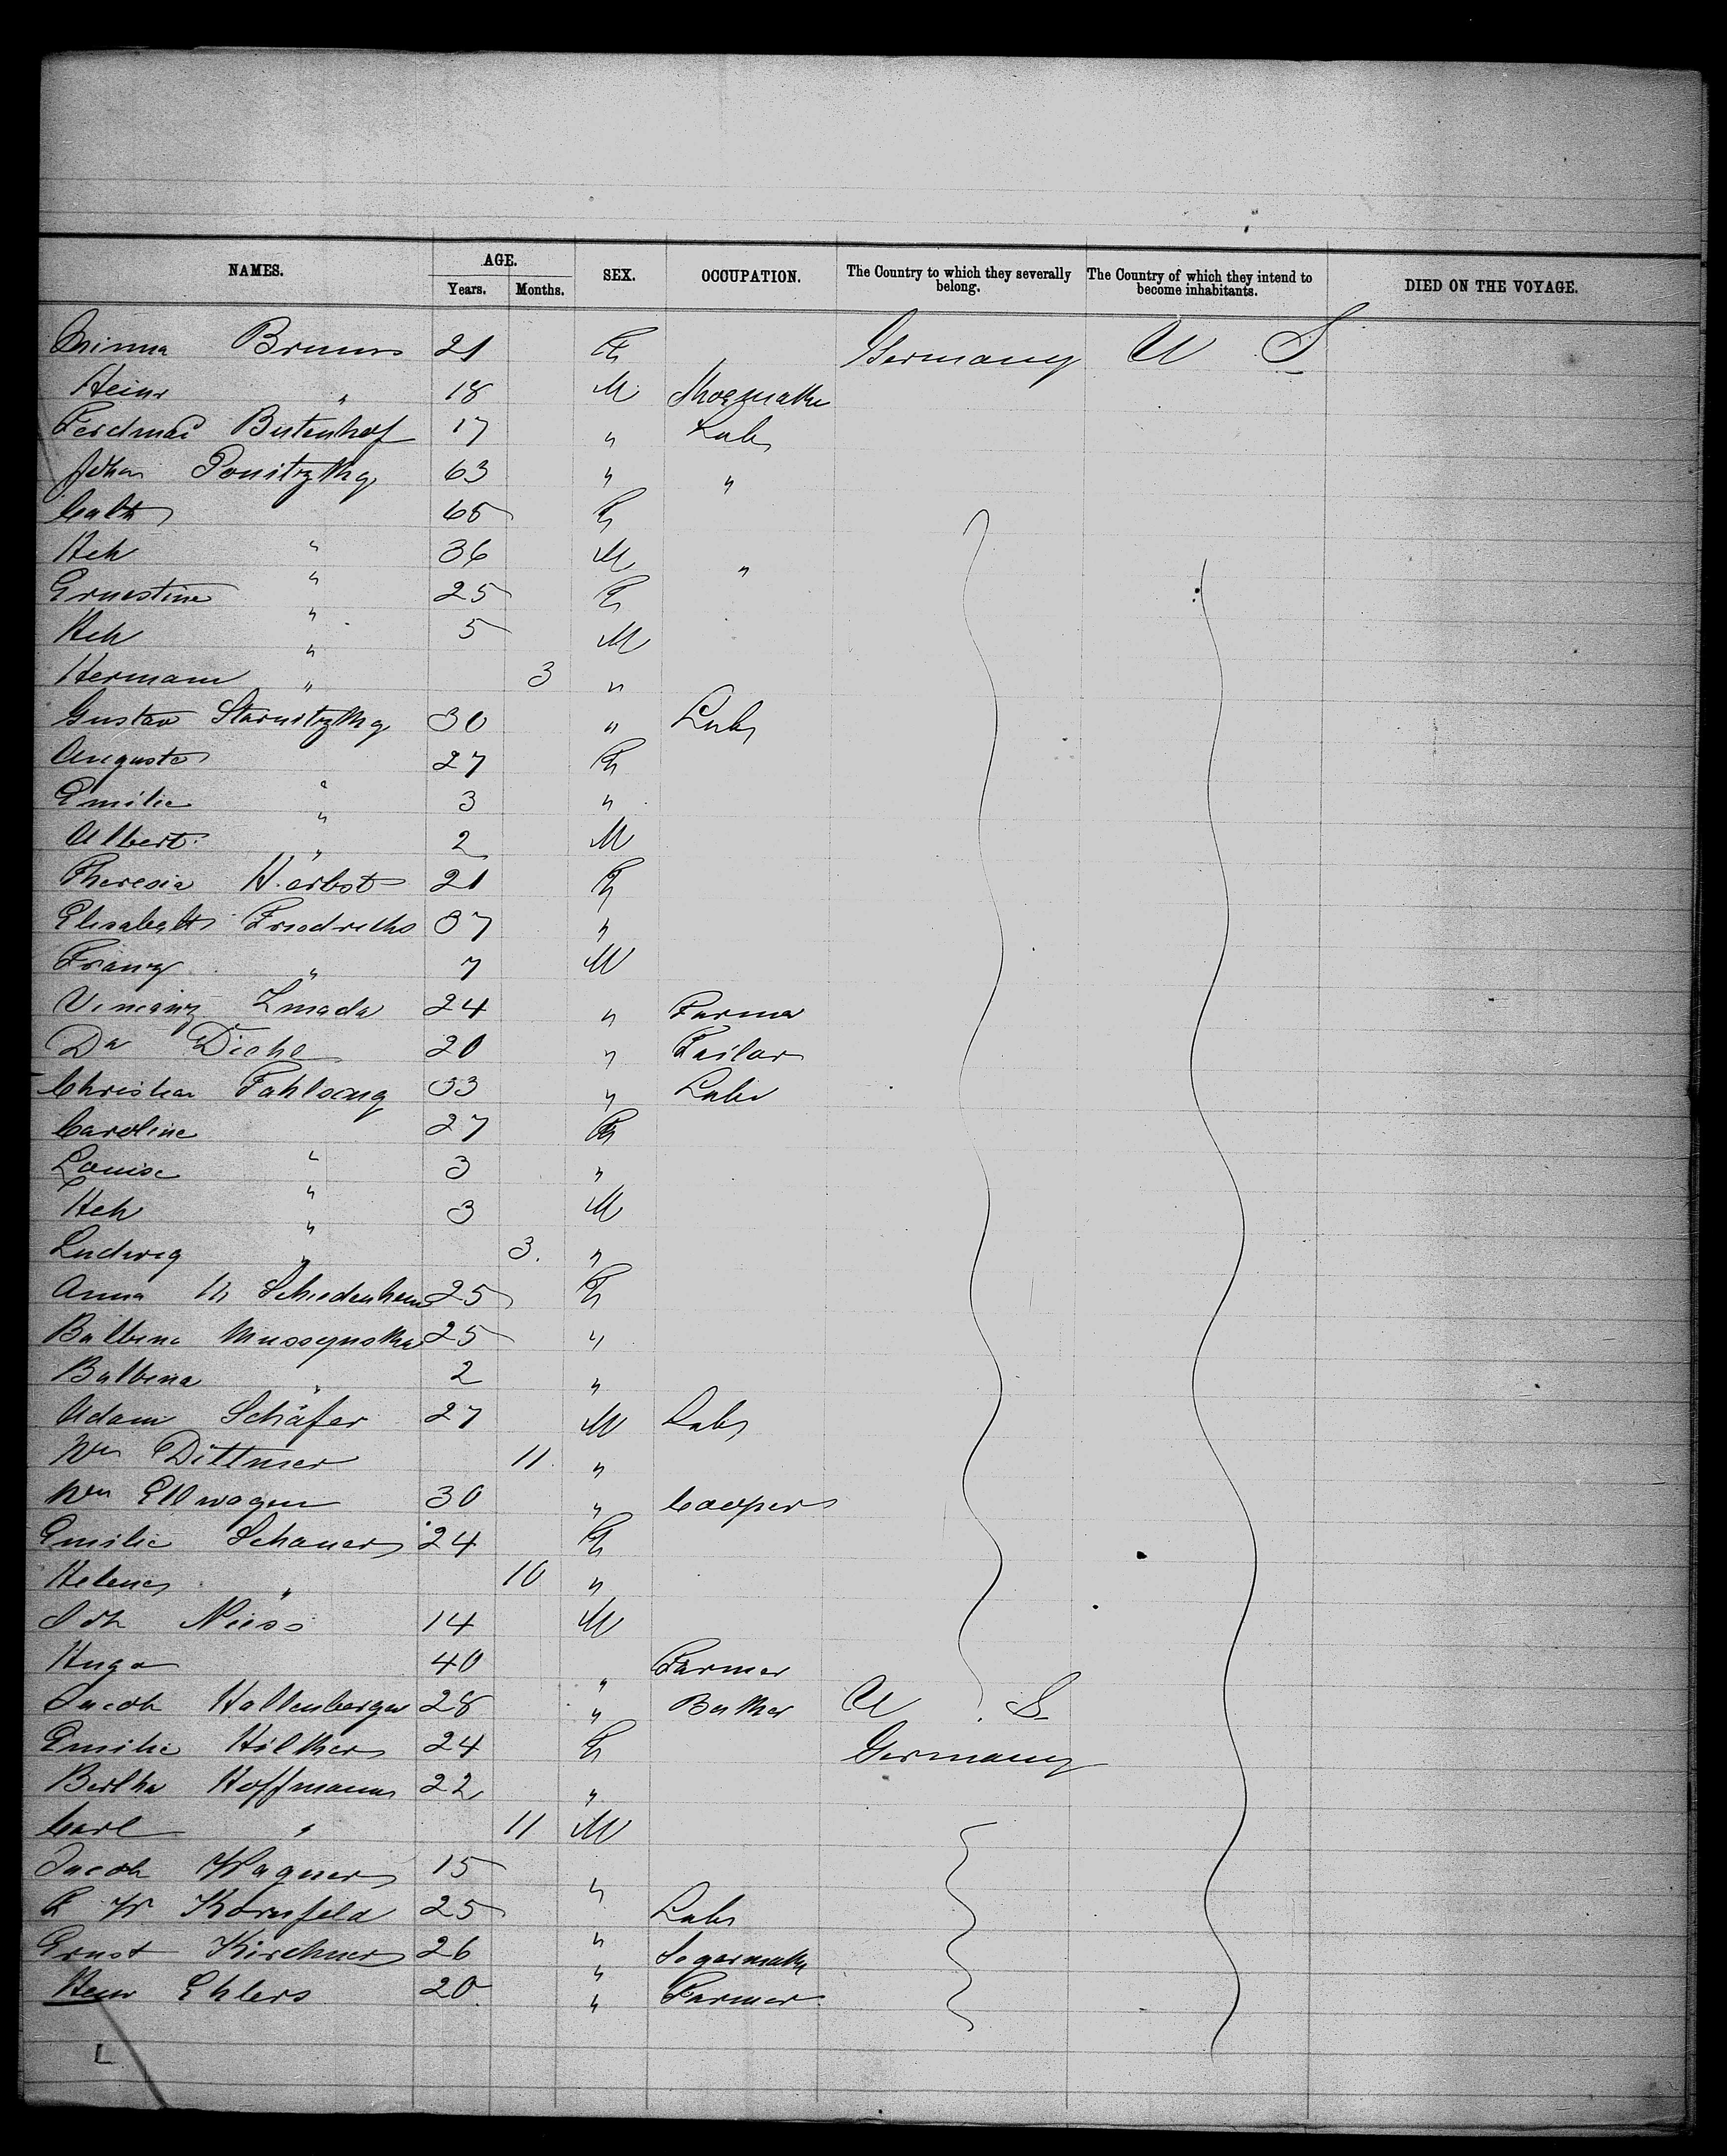 NAMES. AGE. SEX. OCCUPATION. The Country to which they severally belong. The Country of which they intend to become inhabitants. DIED ON THE VOYAGE.
Years. Months.
Minna Bruns 21 F Germany U S
Heinr " 18 M Shoemaker
Ferdinand Butenhof 17 " Lab
Johan Ponitzky 63 " "
Cath " 65 F
Hch " 36 M "
Ernestine " 25 F
Hch " 5 M
Hermann " 3 "
Gustav 30 " Lab
Auguste " 27 F
Emilie " 3 "
Albert " 2 M
Theresia Herbst 21 F
Elisabeth Friedrichs 37 "
Franz " 7 M
Vincenz Zmada 24 " Farmer
Dl Diehl 20 " Tailor
Christian 33 " Labr
Caroline " 27 F
Louise " 3 "
Hch " 3 M
Ludwig " 3 "
Anna M 25 F
Balbina 25 "
Balbina " 2 "
Adam Schäfer 27 M Lab
Wm Dittmer 11 "
Wm Ellwagen 30 " Cooper
Emilie Schauer 24 F
Helene " 10 "
Joh Niess 14 M
Hugo 40 " Farmer
Jacob Hallenberger 28 " Baker U S
Emilie Hilker 24 F Germany
Bertha Hoffmann 22 "
Carl " 11 M
Jacob Wagner 15 "
F W Kornfeld 25 " Labr
Ernst Kirchner 26 " Segarmak
Heinr Ehlers 20 " Farmer
L